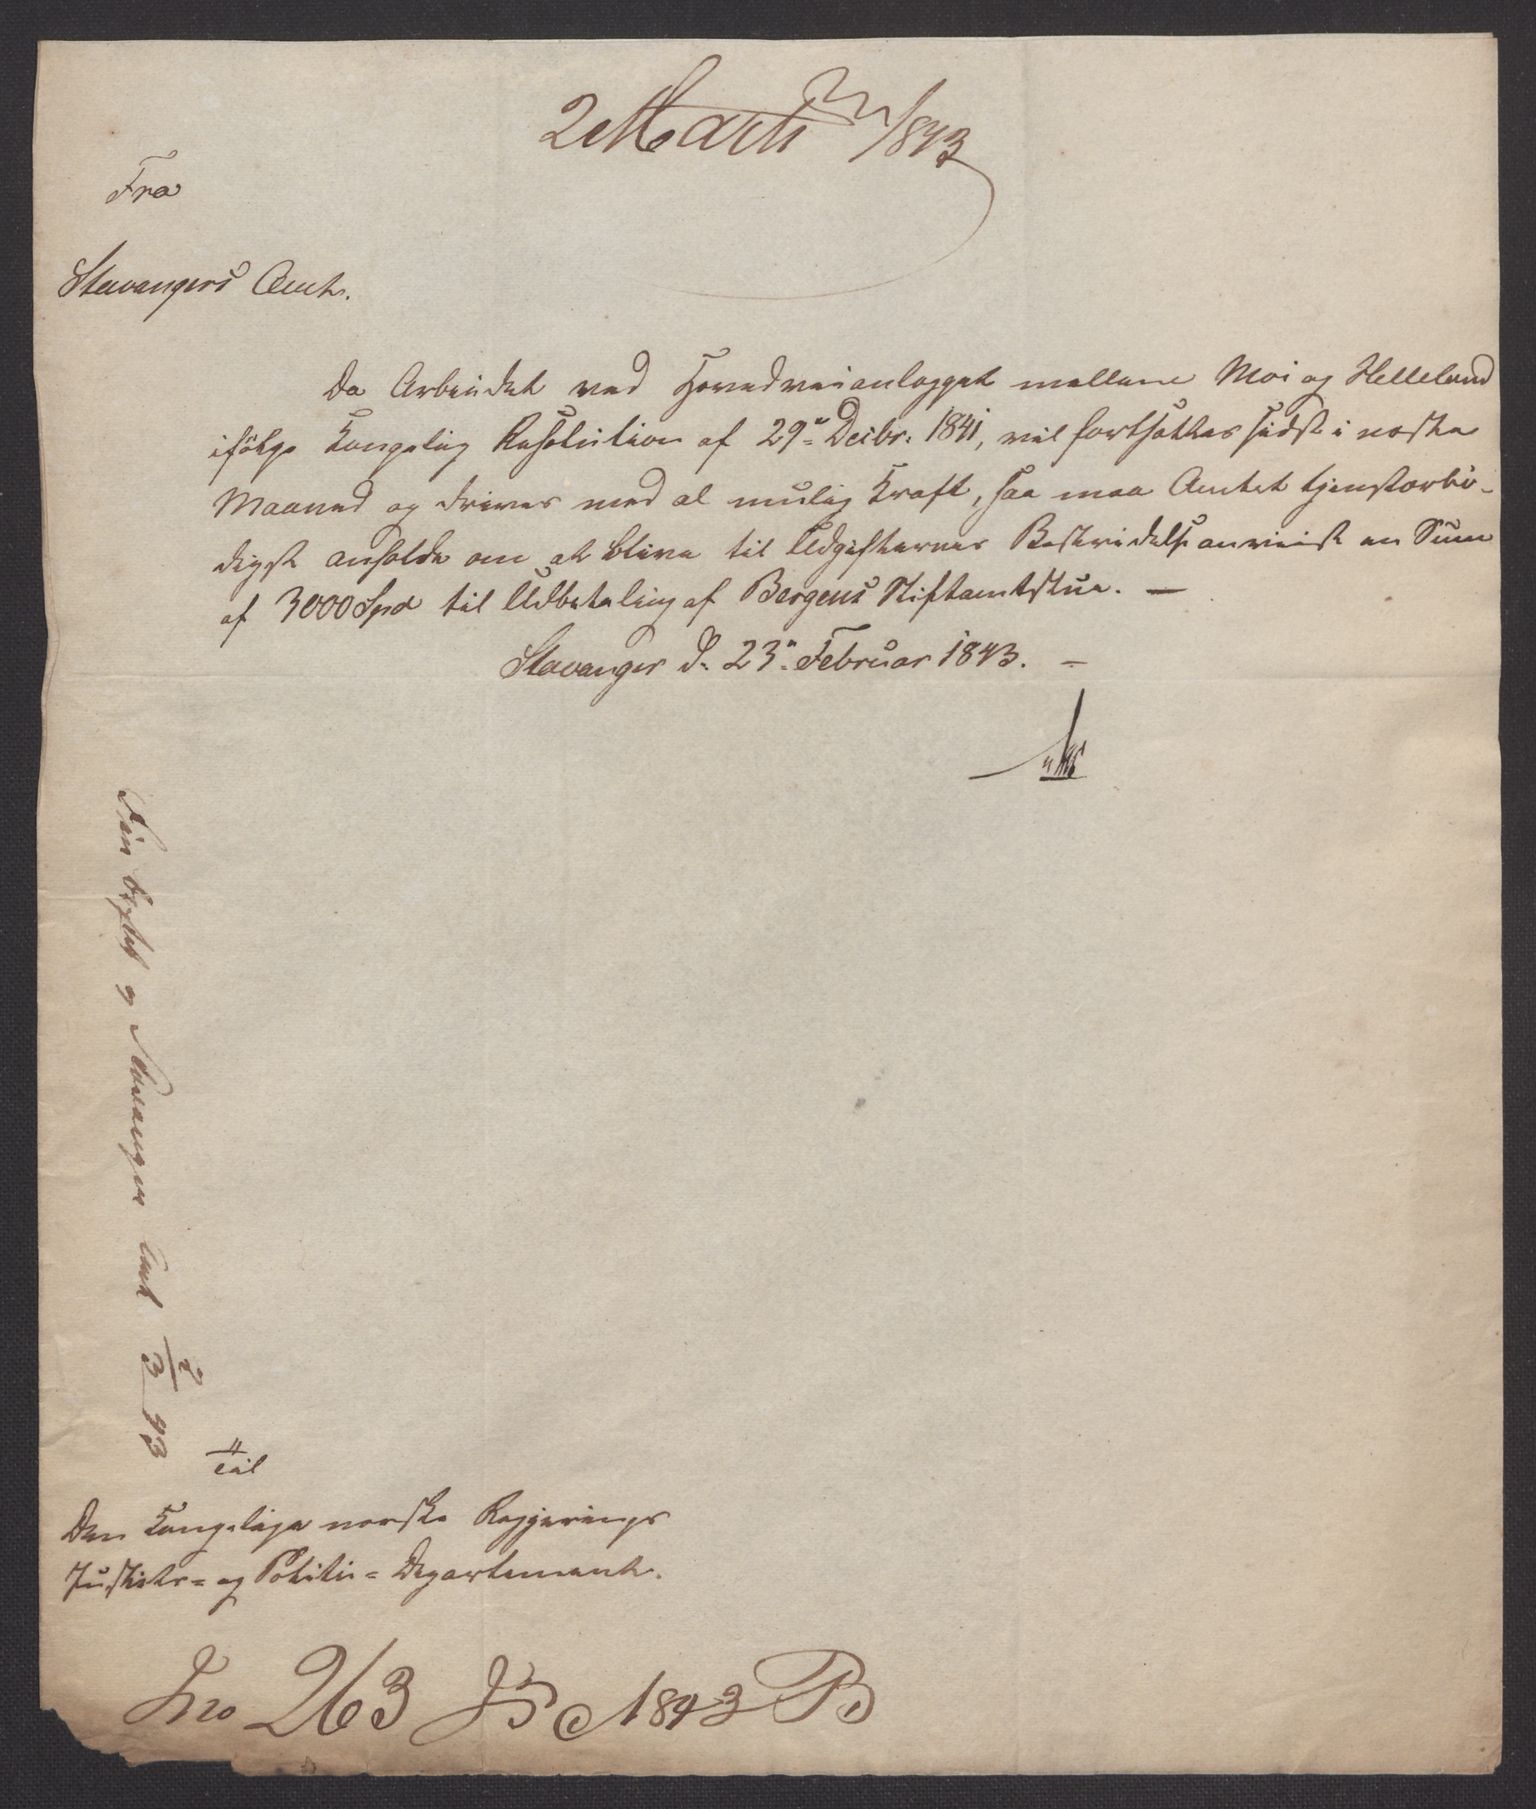 2 Marts 1843
Fra
Stavangers Amt.
Da Arbeidet ved Hovedveianlægget mellem Moi og Helleland
ifölge Kongelig Resolution af 29de Decbr. 1841, vil fortsættes sidst i næste
Maaned og drives med al mulig Kraft, saa maa Amtet tjenstærbö-
digst anholde om at blive til Udgifternes Bestridelse anviist en Sum
af 3000 Spd til Udbetaling af Bergens Stiftamtstue. —
Stavanger d. 23de Februar 1843. —
og Stavanger Amt 2/3 43
Til
Den Kongelige norske Regjerings
Justits- og Politie-Departement.
Jno 263 1843 B